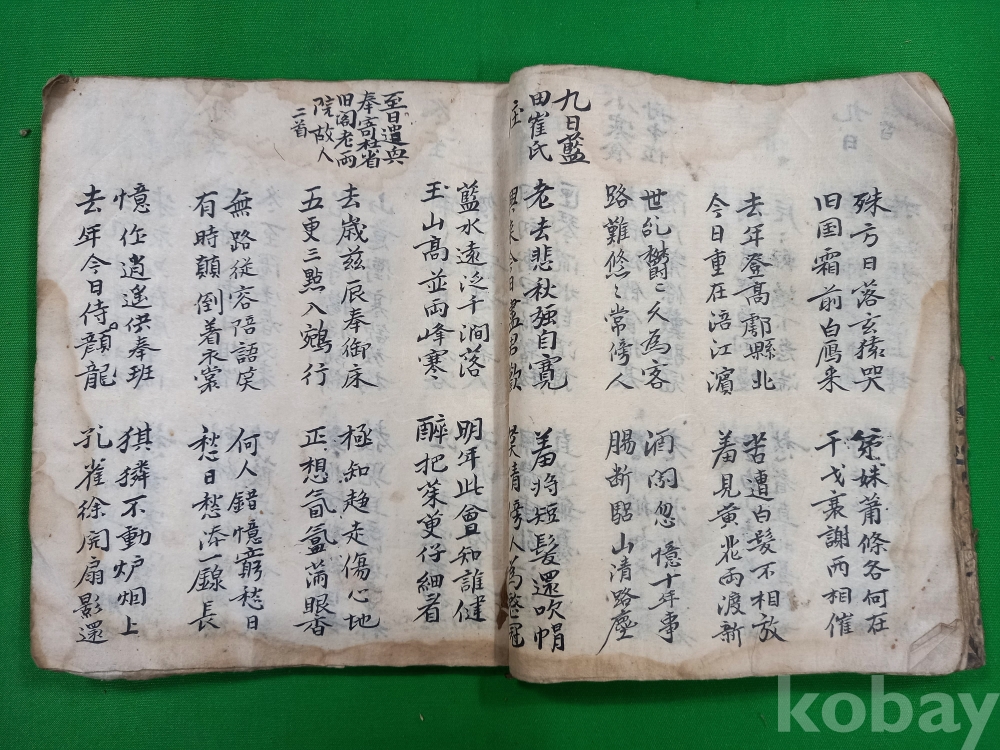 殊方日落玄猿哭
旧国霜前白鴈来
弟妹蕭條各何在
干戈衰謝両相催
去年登高郪縣北
今日重在涪江濱
苦遭白髪不相放
羞見黄花両渡新
世乱欝〻久為客
路難悠〻常傍人
酒闌忽憶十年事
腸断驪山清路塵
九日藍
田崔氏
庄
老去悲秋强自寛
興来今日盡君歓
羞将短髪還吹帽
笑倩傍人為整冠
藍水遠泛千澗落
玉山高並両峰寒
明年此會知誰健
醉把茱更仔細看
至日遣興
奉寄北省
旧閣老両
院故人
二首
去歳兹辰奉御床
五更三點入鵷行
極知趨走傷心地
正想氤氳满眼香
無路從容陪語笑
有時顛倒着衣裳
何人錯憶窮愁日
愁日愁添一線長
憶作逍遥供奉班
去年今日侍顔龍
猉獜不動炉烟上
孔雀徐開扇影還
kobay